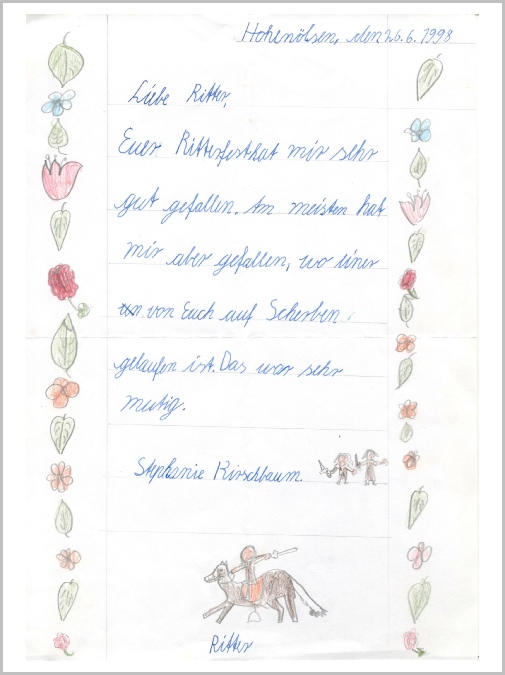 Hohenölsen, den 26.6.1998
Liebe Ritter,
Euer Ritterfest hat mir sehr
gut gefallen. Am meisten hat
mir aber gefallen, wo einer
von Euch auf Scherben
gelaufen ist. Das war sehr
mutig.
Stephanie Kirschbaum.
Ritter